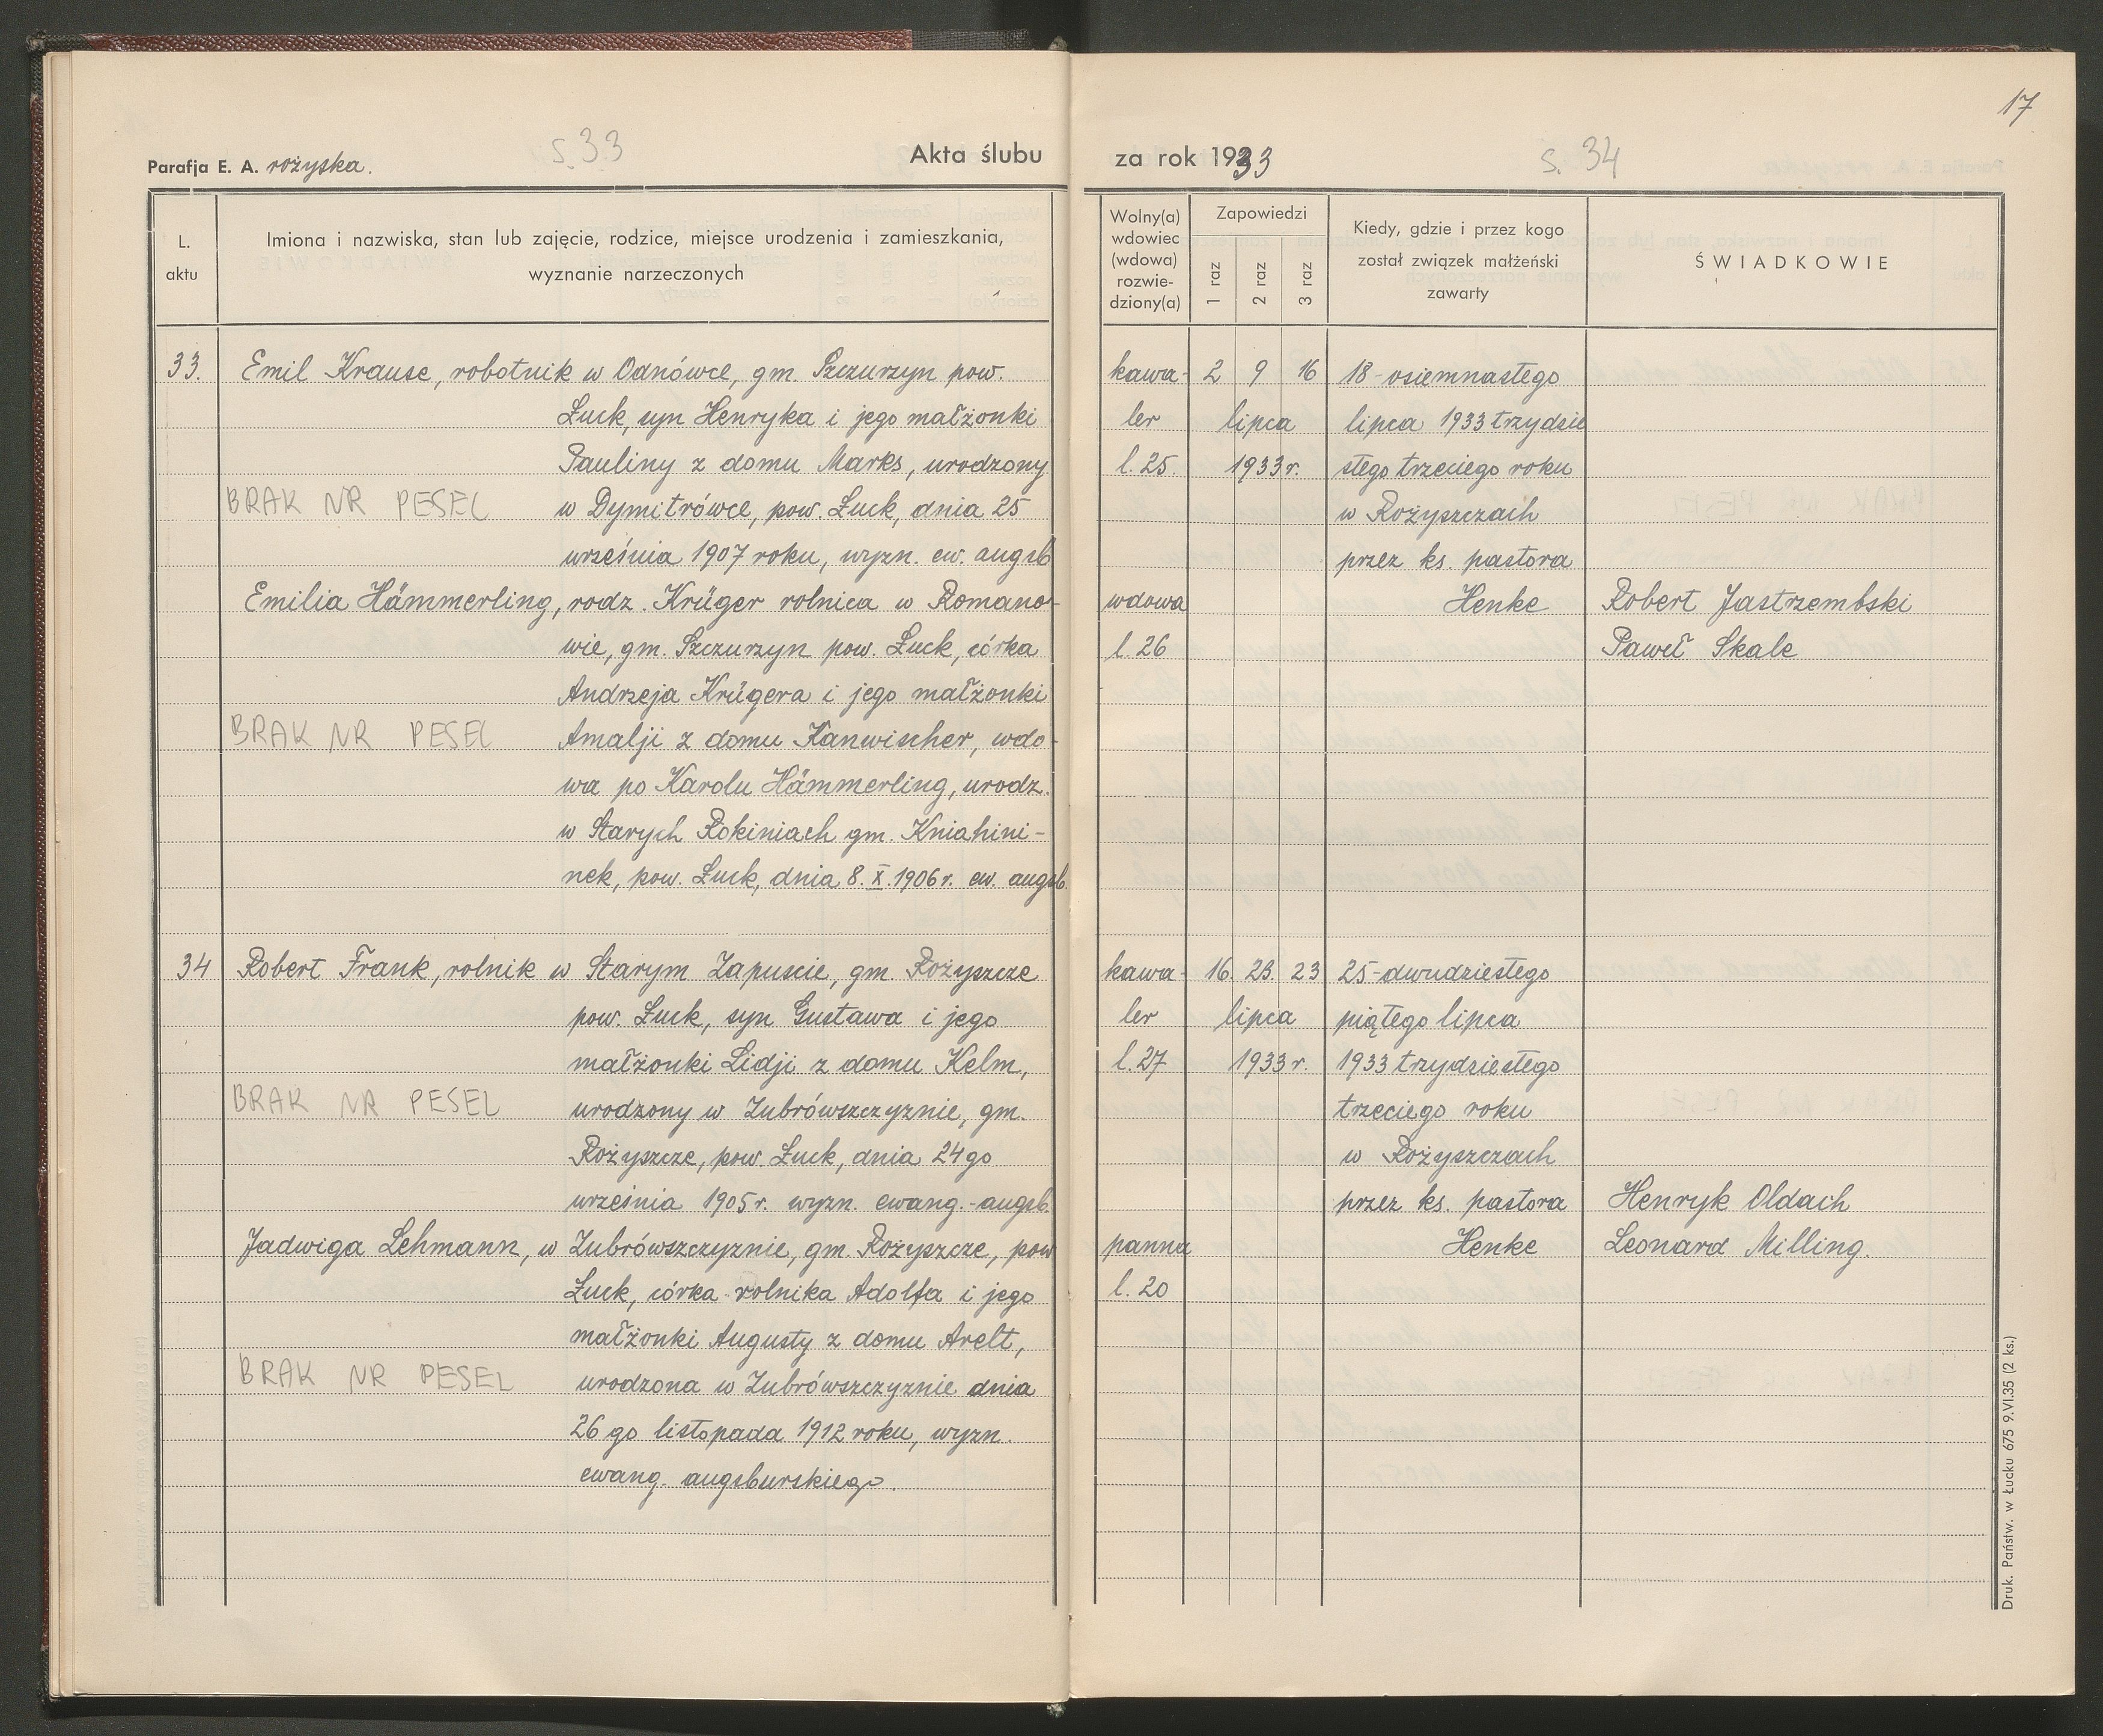 17
s. 33
s. 34
Parafja E. A. rożyska.
Akta ślubu
za rok 1933
L. aktu
Imiona i nazwiska, stan lub zajęcie, rodzice, miejsce urodzenia i zamieszkania,
wyznanie narzeczonych
Wolny(a)
wdowiec
(wdowa)
rozwie-
dziony(a)
Zapowiedzi
1 raz
2 raz
3 raz
Kiedy, gdzie i przez kogo
został związek małżeński
zawarty
ŚWIADKOWIE
33. Emil Krause, robotnik w Odnówce, gm. Szczurzyn pow.
Łuck, syn Henryka i jego małżonki
Pauliny z domu Marks, urodzony
BRAK NR PESEL
w Dymitrówce, pow. Łuck, dnia 25
września 1907 roku, wyzn. ew. augsb
Emilia Hämmerling, rodz. Krüger rolnica w Romano-
wie, gm. Szczurzyn pow. Łuck, córka
Andrzeja Krügera i jego małżonki
BRAK NR PESEL
Amalji z domu Kanwischer, wdo-
wa po Karolu Hämmerling, urodz.
w Starych Rokiniach gm. Kniahini-
nek, pow. Łuck, dnia 8. X. 1906 r. ew. augsb.
kawa-
ler
l. 25.
2 9 16
lipca
1933 r.
18-osiemnastego
lipca 1933 trzydzie
stego trzeciego roku
w Rożyszczach
przez ks. pastora
Henke
wdowa
l. 26
Robert Jastrzembski
Paweł Skale
34 Robert Frank, rolnik w Starym Zapuście, gm. Rożyszcze
pow. Łuck, syn Gustawa i jego
małżonki Lidji z domu Kelm,
BRAK NR PESEL
urodzony w Zubrówszczyznie, gm.
Rożyszcze, pow. Łuck, dnia 24 go
września 1905 r. wyzn. ewang.-augsb.
Jadwiga Lehmann, w Zubrówszczyznie, gm. Rożyszcze, pow
Łuck, córka rolnika Adolfa i jego
małżonki Augusty z domu Arelt,
BRAK NR PESEL
urodzona w Zubrówszczyznie dnia
26 go listopada 1912 roku, wyzn.
ewang. augsburskiego.
kawa-
ler
l. 27
16 23 23
lipca
1933 r.
25-dwudziestego
piątego lipca
1933 trzydziestego
trzeciego roku
w Rożyszczach
przez ks. pastora
Henke
panna
l. 20
Henryk Oldach
Leonard Milling.
Druk. Państw. w Łucku 675 9.VI.35 (2 ks.)